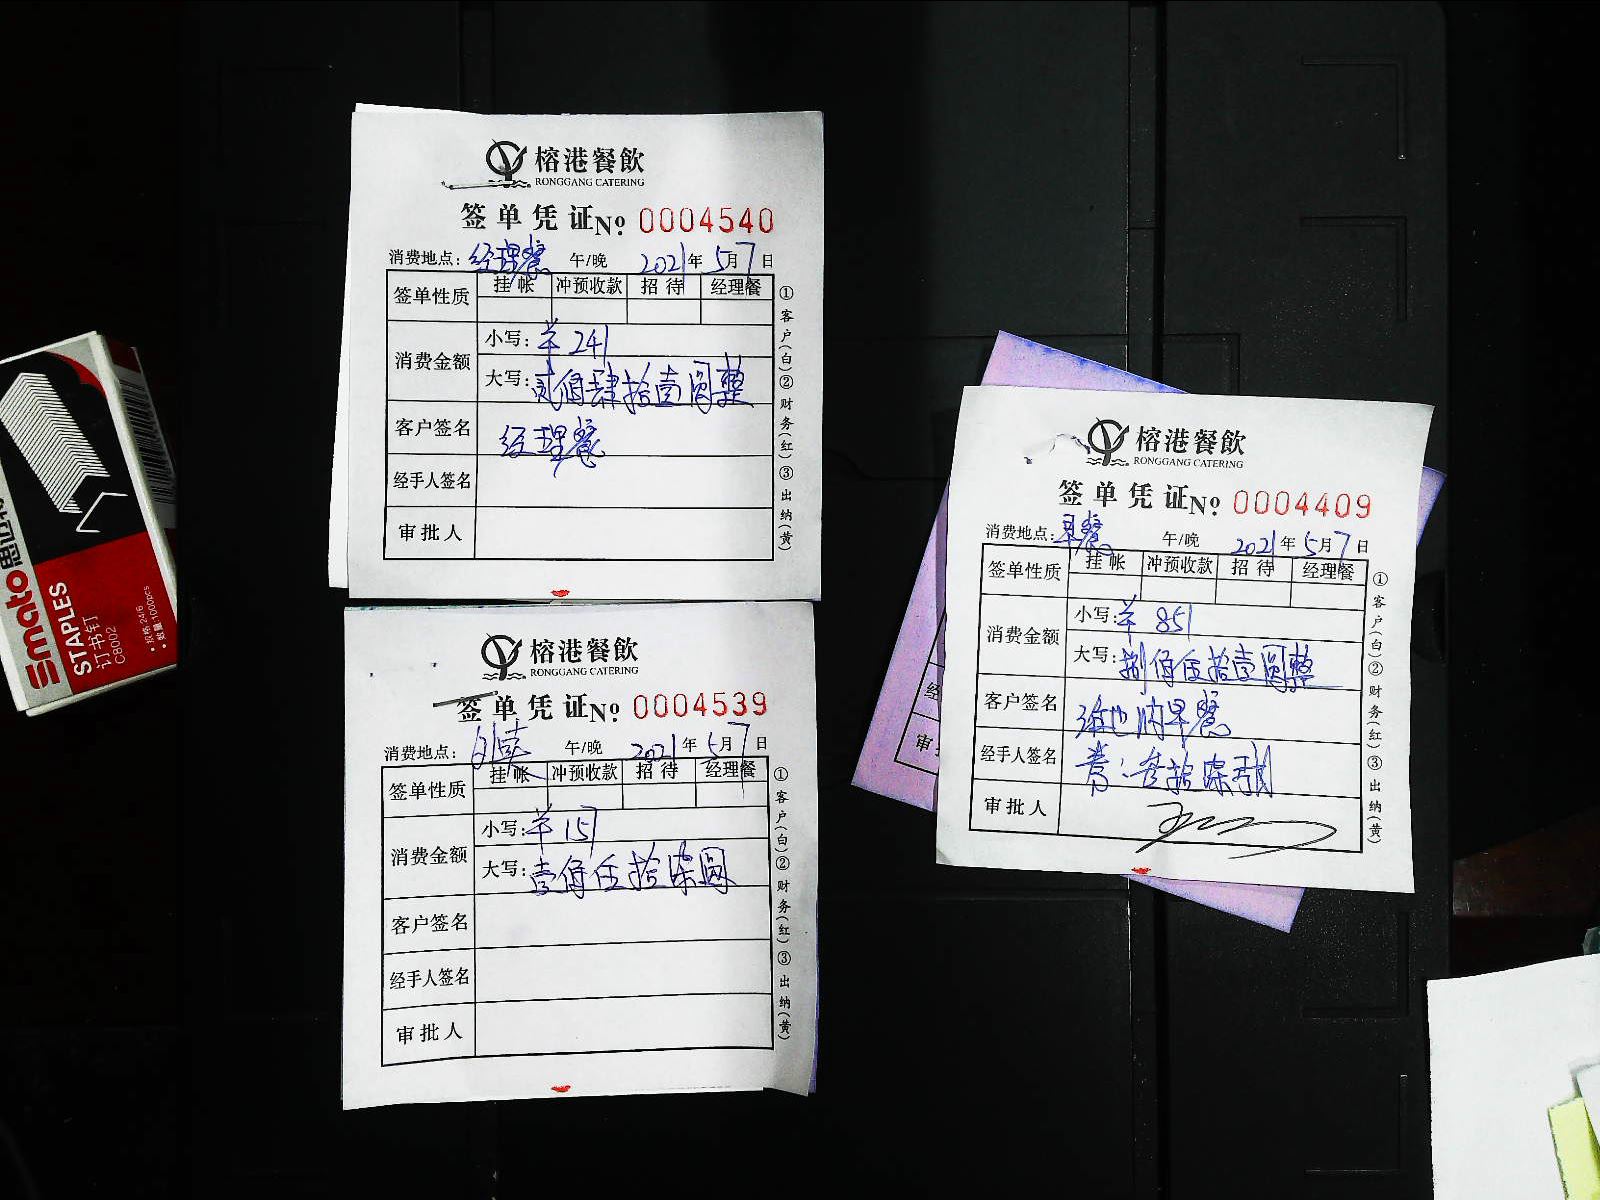 榕港餐飲
RONGGANG CATERING
签单凭证 № 0004540
消费地点: 经理餐 午/晚 2021年5月7日
签单性质 挂帐 冲预收款 招待 经理餐
消费金额 小写: 羊 241
大写: 贰佰肆拾壹圆整
客户签名 经理餐
经手人签名
审批人
①客户(白)②财务(红)③出纳(黄)
榕港餐飲
RONGGANG CATERING
签单凭证 № 0004539
消费地点: 午/晚 2021年5月7日
签单性质 挂帐 冲预收款 招待 经理餐
消费金额 小写: 羊 157
大写: 壹佰伍拾柒圆
客户签名
经手人签名
审批人
①客户(白)②财务(红)③出纳(黄)
榕港餐飲
RONGGANG CATERING
签单凭证 № 0004409
消费地点: 早餐 午/晚 2021年5月7日
签单性质 挂帐 冲预收款 招待 经理餐
消费金额 小写: 羊 851
大写: 捌佰伍拾壹圆整
客户签名 早餐
经手人签名
审批人
①客户(白)②财务(红)③出纳(黄)
经
审
Smato
STAPLES
订书钉
规格:24/6
数量:1000pcs